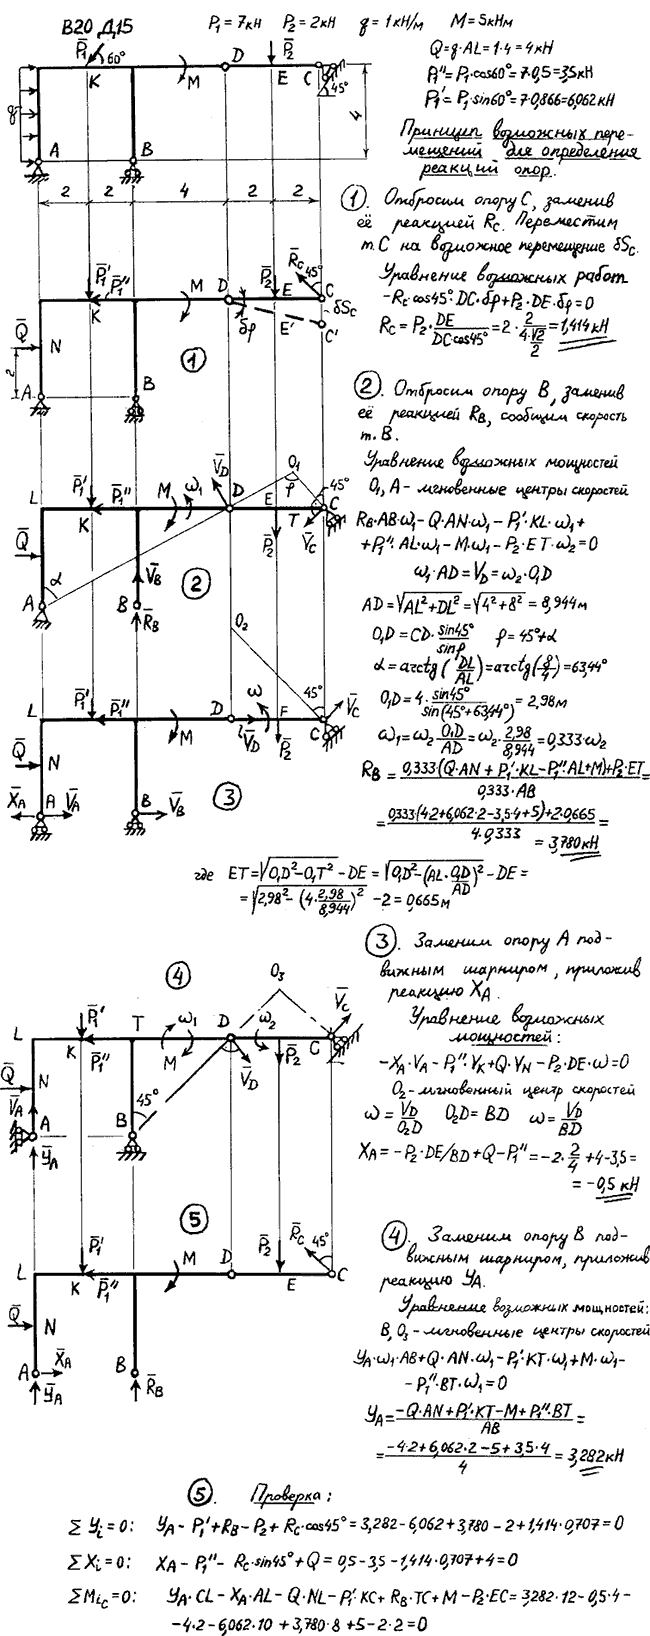 В20 Д.15
P₁=7кН P₂=2кН q=1кН/м M=5кНм
Q=q·AL=1·4=4кН
P₁''=P₁·cos60°=7·0,5=3,5кН
P₁'=P₁·sin60°=7·0,866=6,062кН
Принцип возможных пере-
мещений для определения
реакций опор.
P̄₁ 60° K M D P̄₂ E C 45°
q A B 4
2 2 4 2 2
① Отбросим опору C, заменив
её реакцией Rc. Переместим
т. C на возможное перемещение δSc.
Уравнение возможных работ
-Rc·cos45°·DC·δφ+P₂·DE·δφ=0
Rc=P₂·DE/(DC·cos45°)=2·2/(4·√2/2)=1,414кН
P̄₁' P̄₁'' K M D P̄₂ E R̄c 45° C
Q̄ N δφ E' δSc C'
2 A B ①
② Отбросим опору B, заменив
её реакцией RB, сообщим скорость
т. B.
Уравнение возможных мощностей
O₁, A - мгновенные центры скоростей
RB·AB·ω₁-Q·AN·ω₁-P₁'·KL·ω₁+
+P₁''·AL·ω₁-M·ω₁-P₂·ET·ω₂=0
ω₁·AD=VD=ω₂·O₁D
AD=√(AL²+DL²)=√(4²+8²)=8,944м
O₁D=CD·sin45°/sinφ φ=45°+α
α=arctg(DL/AL)=arctg(8/4)=63,44°
O₁D=4·sin45°/sin(45°+63,44°)=2,98м
ω₁=ω₂·O₁D/AD=ω₂·2,98/8,944=0,333·ω₂
RB=(0,333·(Q·AN+P₁'·KL-P₁''AL+M)+P₂·ET)/(0,333·AB)=
=(0,333(4·2+6,062·2-3,5·4+5)+2·0,665)/(4·0,333)=
=3,780кН
L P̄₁' P̄₁'' K M ω₁ V̄D D O₁ φ E 45° C T
Q̄ α A V̄B B R̄B P̄₂ V̄c ②
L P̄₁' P̄₁'' K M D V̄D ω F P̄₂ O₂ 45° C V̄c
Q̄ N X̄A A V̄A B V̄B ③
где ET=√(O₁D²-O₁T²)-DE=√(O₁D²-(AL·O₁D/AD)²)-DE=
=√(2,98²-(4·2,98/8,944)²)-2=0,665м
③. Заменим опору A под-
вижным шарниром, приложив
реакцию XA.
Уравнение возможных
мощностей:
-XA·VA-P₁''·VK+Q·VN-P₂·DE·ω=0
O₂-мгновенный центр скоростей
ω=VD/O₂D O₂D=BD ω=VD/BD
XA=-P₂·DE/BD+Q-P₁''=-2·2/4+4-3,5=
=-0,5кН
④ O₃
L P̄₁' P̄₁'' K T ω₁ M D ω₂ P̄₂ V̄D C V̄c
Q̄ N V̄A A ȲA 45° B
⑤
L P̄₁' P̄₁'' K M D P̄₂ E R̄c 45° C
Q̄ N A X̄A ȲA B R̄B
④. Заменим опору B под-
вижным шарниром, приложив
реакцию YA.
Уравнение возможных мощностей:
B, O₃-мгновенные центры скоростей
YA·ω₁·AB+Q·AN·ω₁-P₁'·KT·ω₁+M·ω₁-
-P₁''·BT·ω₁=0
YA=(-Q·AN+P₁'·KT-M+P₁''·BT)/AB=
=(-4·2+6,062·2-5+3,5·4)/4=3,282кН
⑤. Проверка:
ΣYi=0: YA-P₁'+RB-P₂+Rc·cos45°=3,282-6,062+3,780-2+1,414·0,707=0
ΣXi=0: XA-P₁''-Rc·sin45°+Q=0,5-3,5-1,414·0,707+4=0
ΣMic=0: YA·CL-XA·AL-Q·NL-P₁'·KC+RB·TC+M-P₂·EC=3,282·12-0,5·4-
-4·2-6,062·10+3,780·8+5-2·2=0